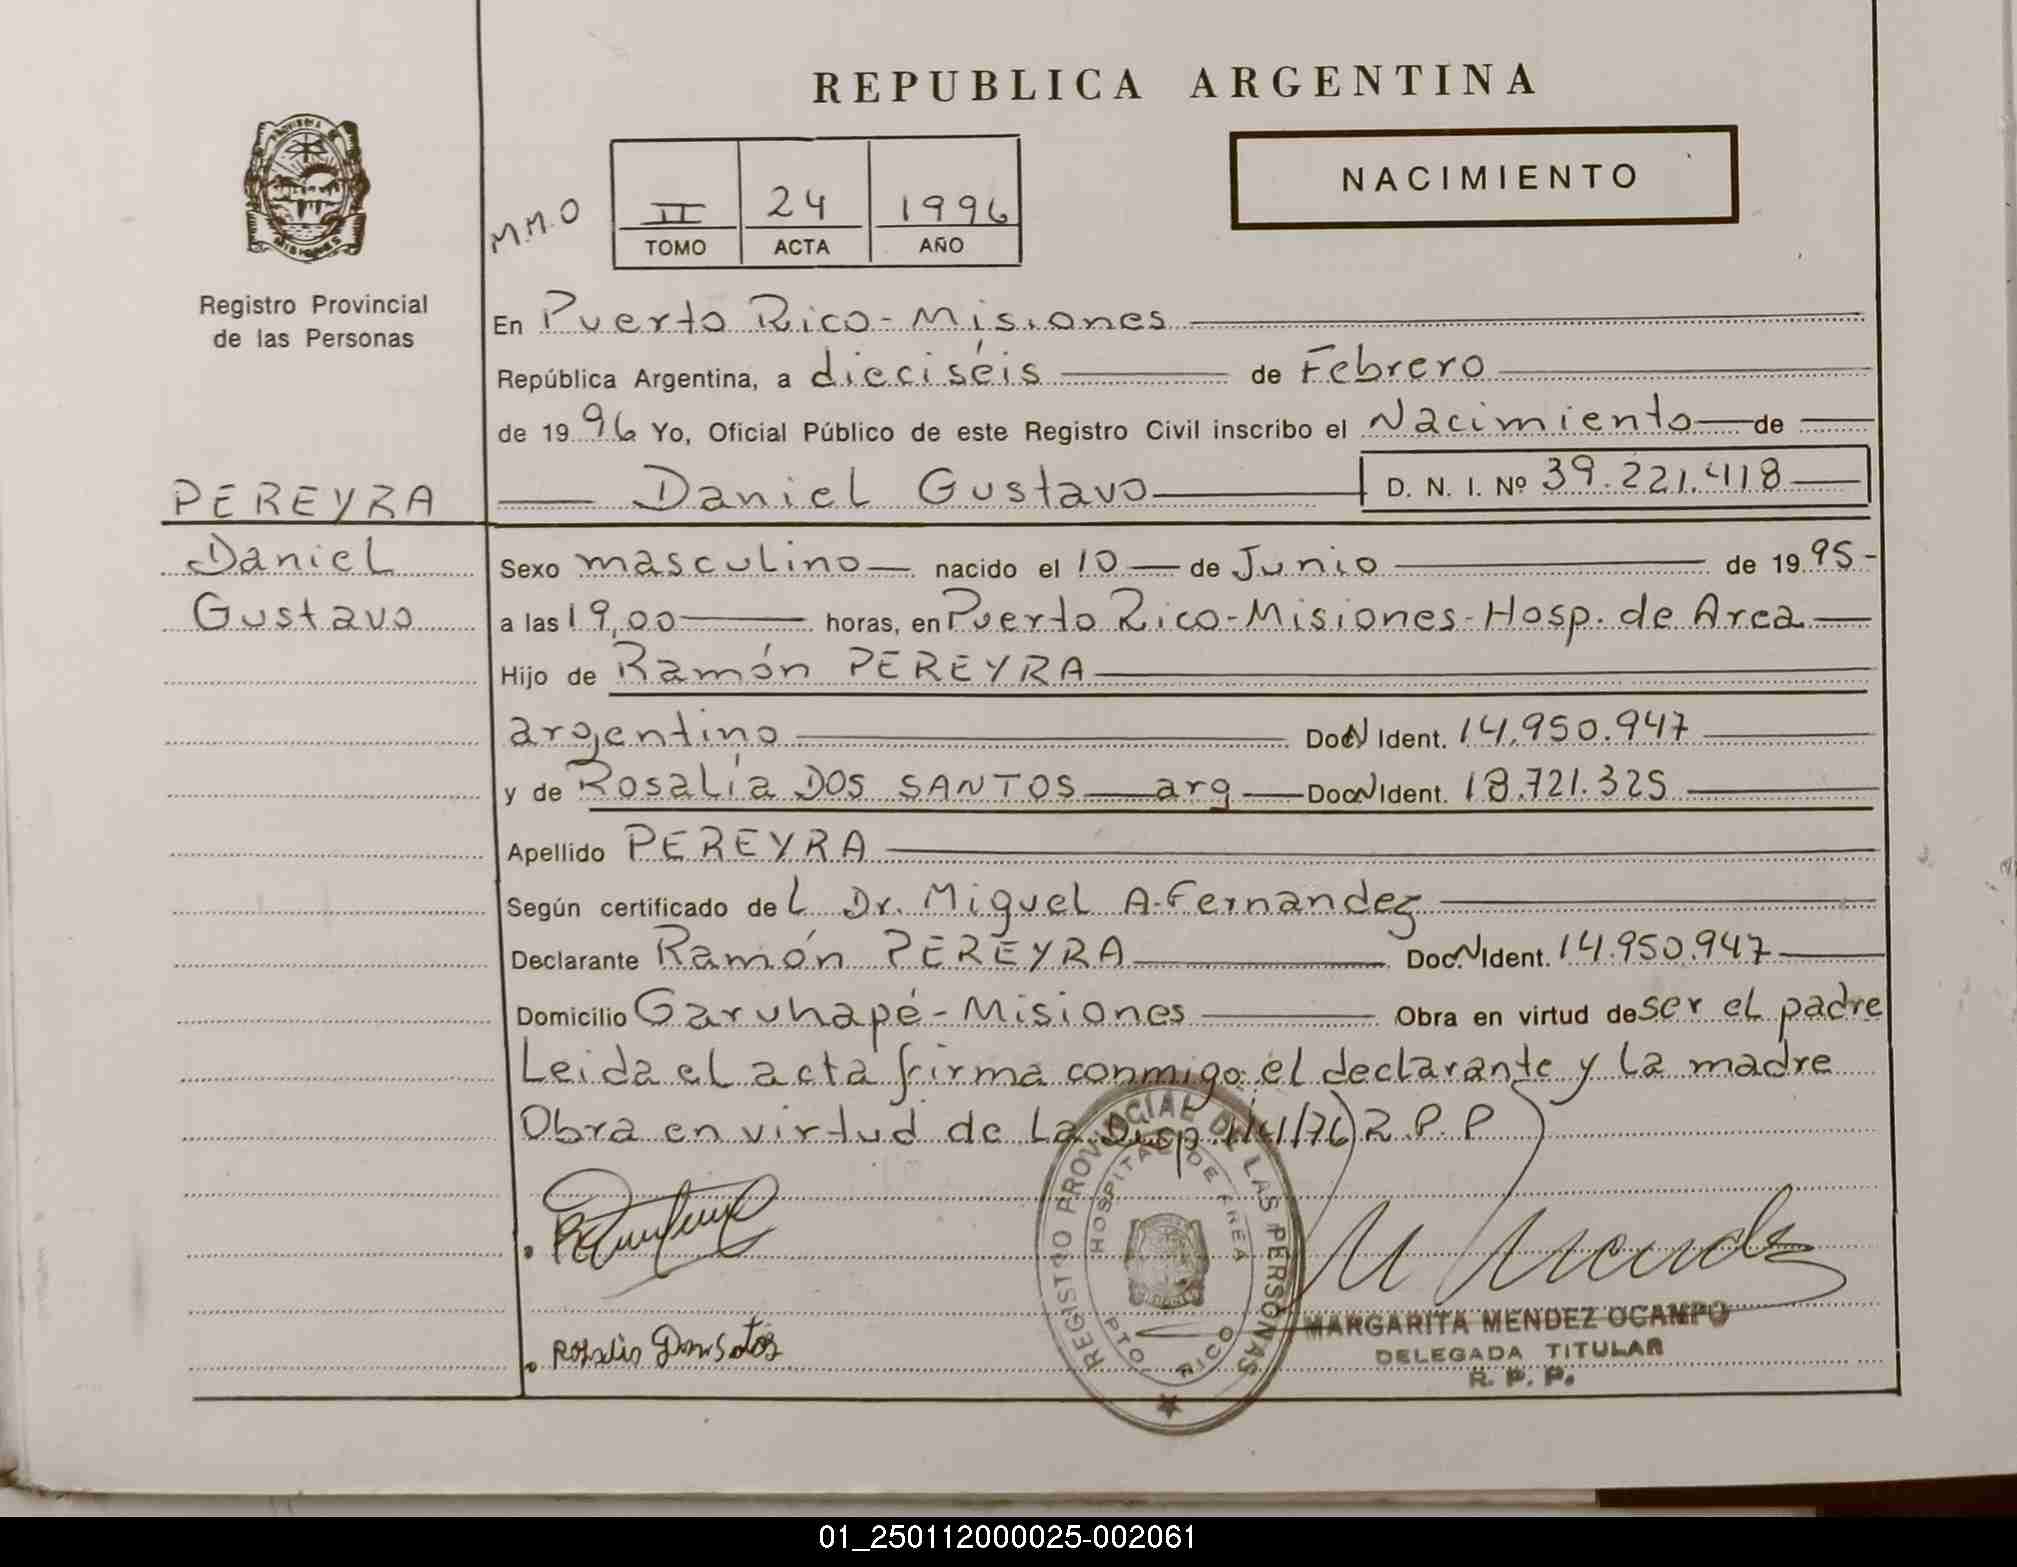 REPUBLICA ARGENTINA
NACIMIENTO
PROVINCIA DE
MISIONES
Registro Provincial
de las Personas
M.M.O
II 24 1996
TOMO ACTA AÑO
En Puerto Rico - Misiones
República Argentina, a dieciséis de Febrero
de 1996 Yo, Oficial Público de este Registro Civil inscribo el Nacimiento de
Daniel Gustavo D. N. I. Nº 39.221.418
PEREYRA
Daniel
Gustavo
Sexo masculino nacido el 10 de Junio de 1995-
a las 19,00 horas, en Puerto Rico-Misiones-Hosp. de Area
Hijo de Ramón PEREYRA
argentino Doc N Ident. 14.950.947
y de Rosalía DOS SANTOS arg Doc N Ident. 18.721.325
Apellido PEREYRA
Según certificado del Dr. Miguel A. Fernandez
Declarante Ramón PEREYRA Doc. N Ident. 14.950.947
Domicilio Garuhapé - Misiones Obra en virtud de ser el padre
Leida el acta firma conmigo el declarante y la madre
Obra en virtud de la Disp. 141/76) R.P.P
REGISTRO PROVINCIAL DE LAS PERSONAS
HOSPITAL DE AREA
PTO RICO
MARGARITA MENDEZ OCAMPO
DELEGADA TITULAR
R. P. P.
01_250112000025-002061